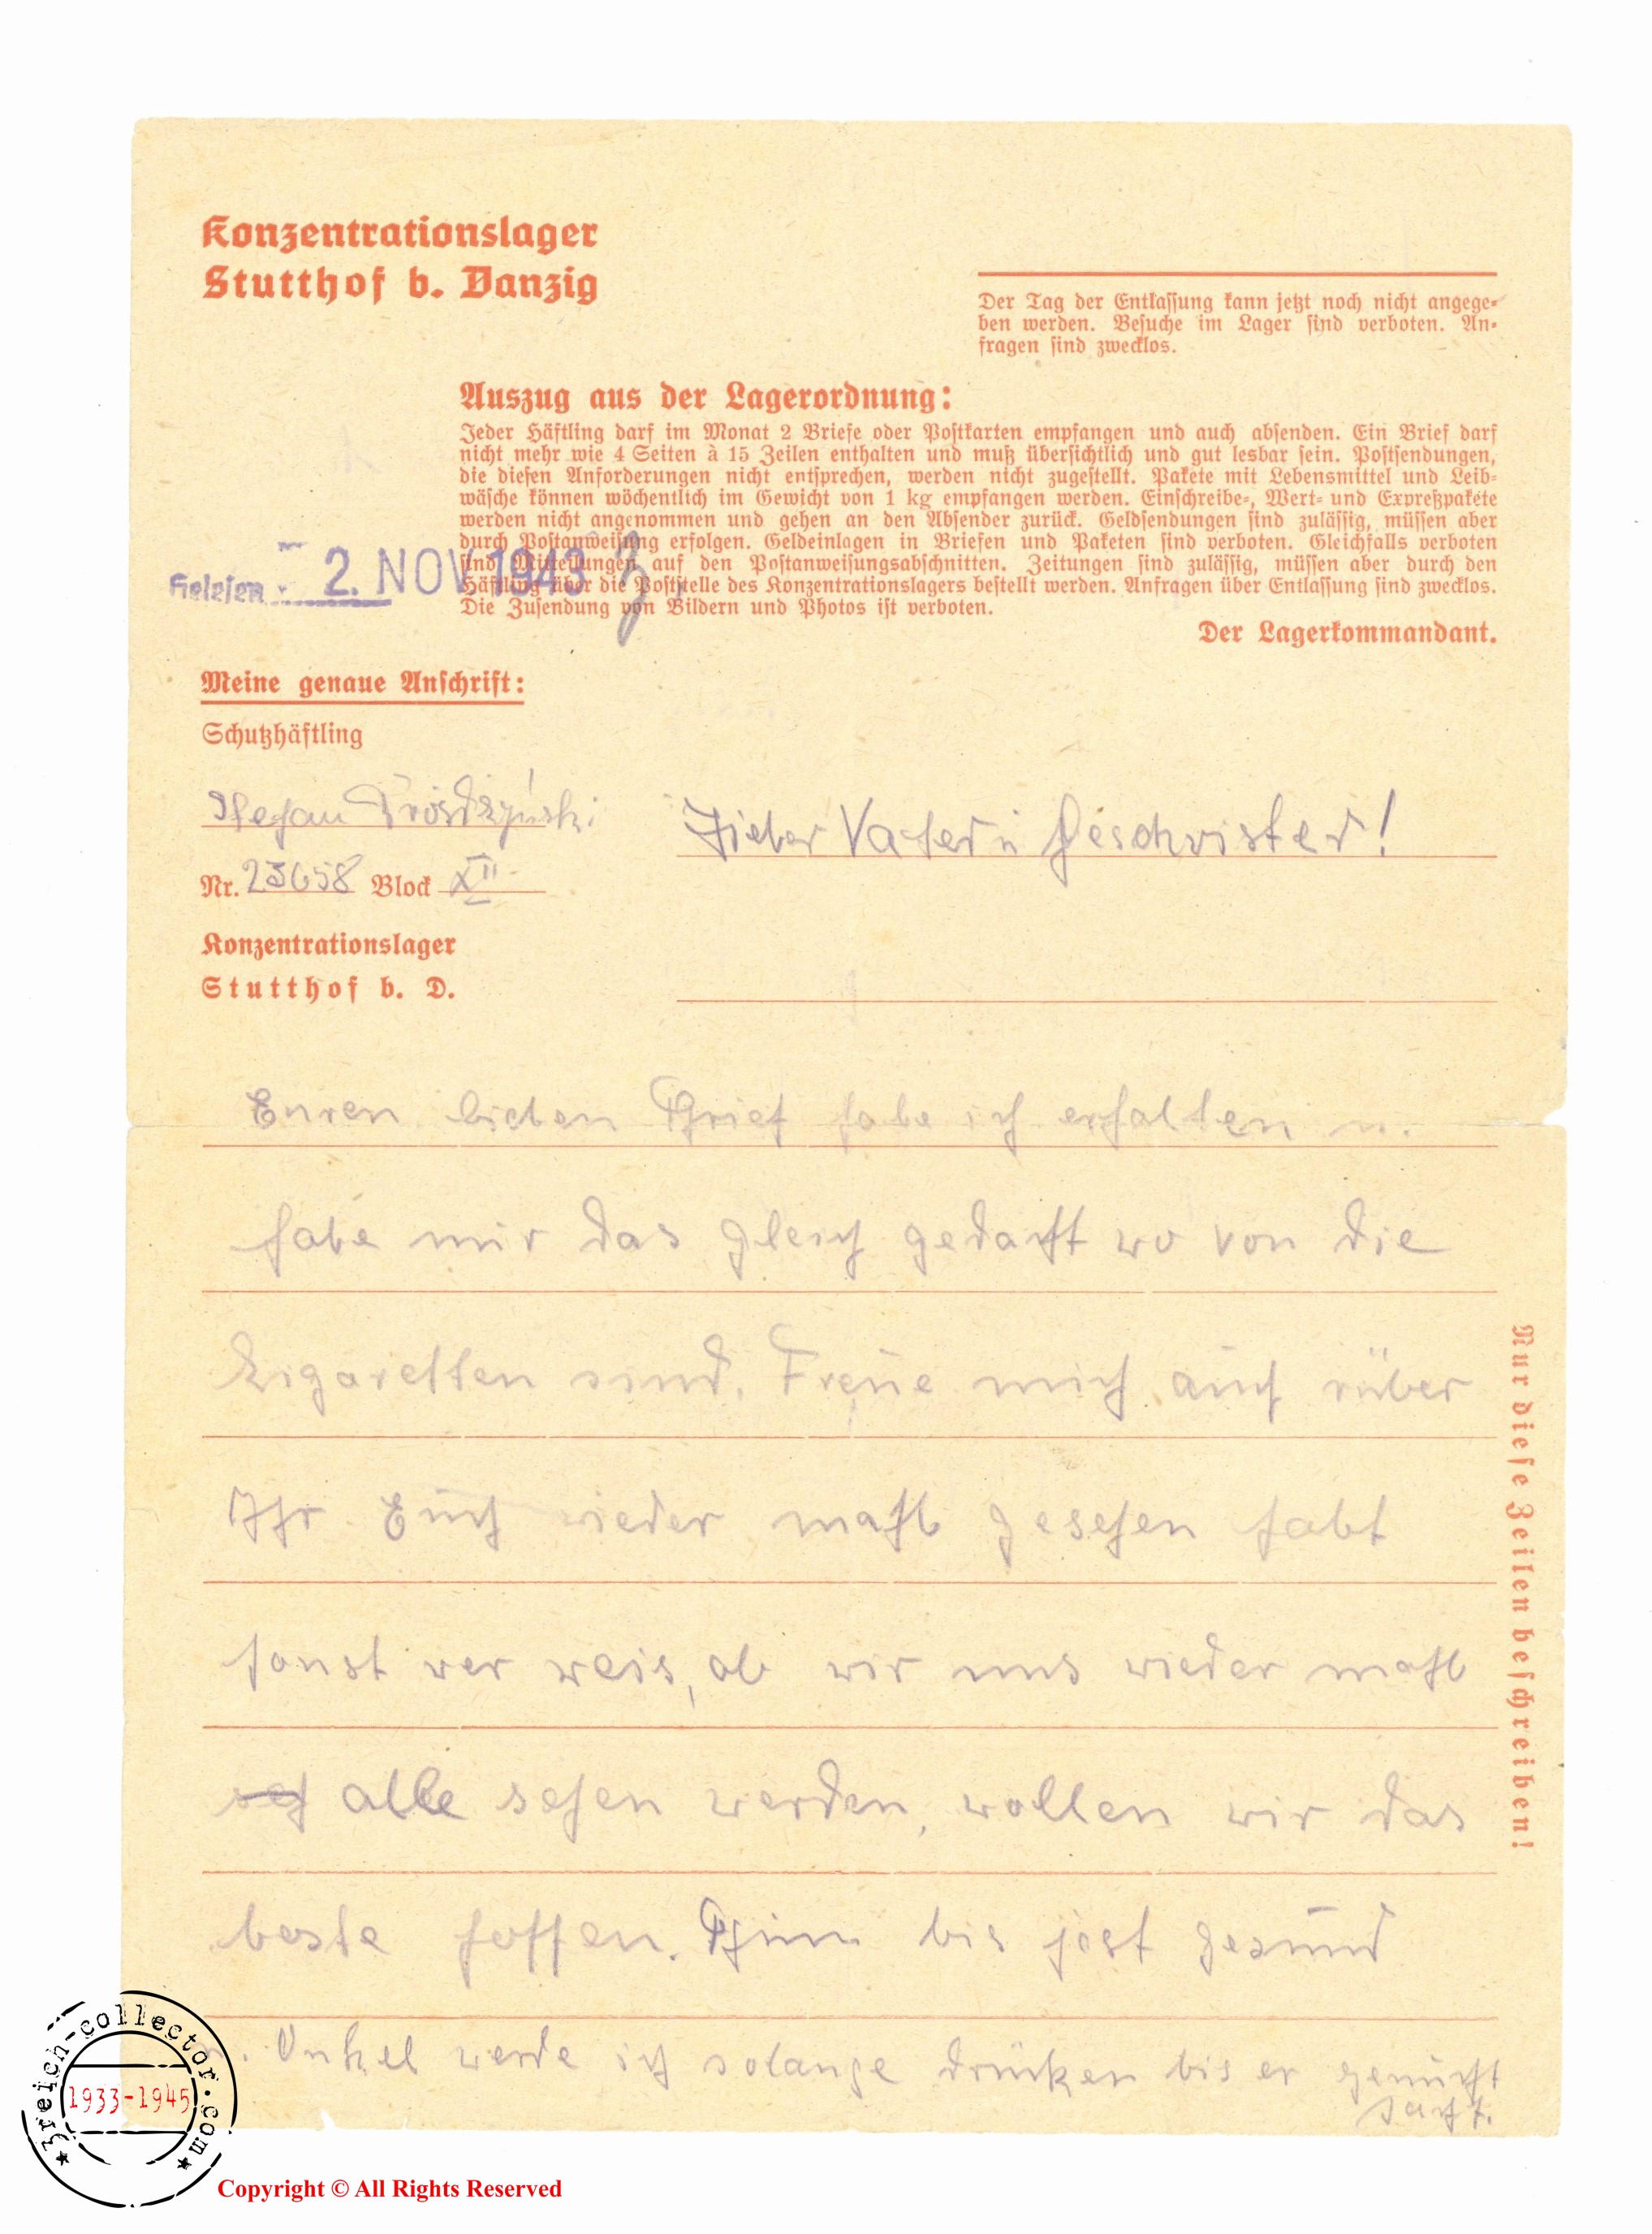 Konzentrationslager
Stutthof b. Danzig
Der Tag der Entlassung kann jetzt noch nicht angege-
ben werden. Besuche im Lager sind verboten. An-
fragen sind zwecklos.
Auszug aus der Lagerordnung:
Jeder Häftling darf im Monat 2 Briefe oder Postkarten empfangen und auch absenden. Ein Brief darf
nicht mehr wie 4 Seiten à 15 Zeilen enthalten und muß übersichtlich und gut lesbar sein. Postsendungen,
die diesen Anforderungen nicht entsprechen, werden nicht zugestellt. Pakete mit Lebensmittel und Leib-
wäsche können wöchentlich im Gewicht von 1 kg empfangen werden. Einschreibe-, Wert- und Expreßpakete
werden nicht angenommen und gehen an den Absender zurück. Geldsendungen sind zulässig, müssen aber
durch Postanweisung erfolgen. Geldeinlagen in Briefen und Paketen sind verboten. Gleichfalls verboten
sind Mitteilungen auf den Postanweisungsabschnitten. Zeitungen sind zulässig, müssen aber durch den
Häftling über die Poststelle des Konzentrationslagers bestellt werden. Anfragen über Entlassung sind zwecklos.
Die Zusendung von Bildern und Photos ist verboten.
Der Lagerkommandant.
Gelesen 2. NOV. 1943
Meine genaue Anschrift:
Schutzhäftling
Stefan
Nr. 23658 Block XII
Konzentrationslager
Stutthof b. D.
Lieber Vater u Geschwister!
Euren lieben Brief habe ich erhalten u.
habe mir das gleich gedacht wo von die
Zigaretten sind. Freue mich auch rüber
Ihr Euch wieder mahl gesehen habt
sonst wer weis, ob wir uns wieder mahl
alle sehen werden, wollen wir das
beste hoffen. Bin bis jest gesund
u. Onkel werde ich solange drücken bis er genucht
sacht.
Nur diese Zeilen beschreiben!
3reich-collector.com
1933-1945
Copyright © All Rights Reserved